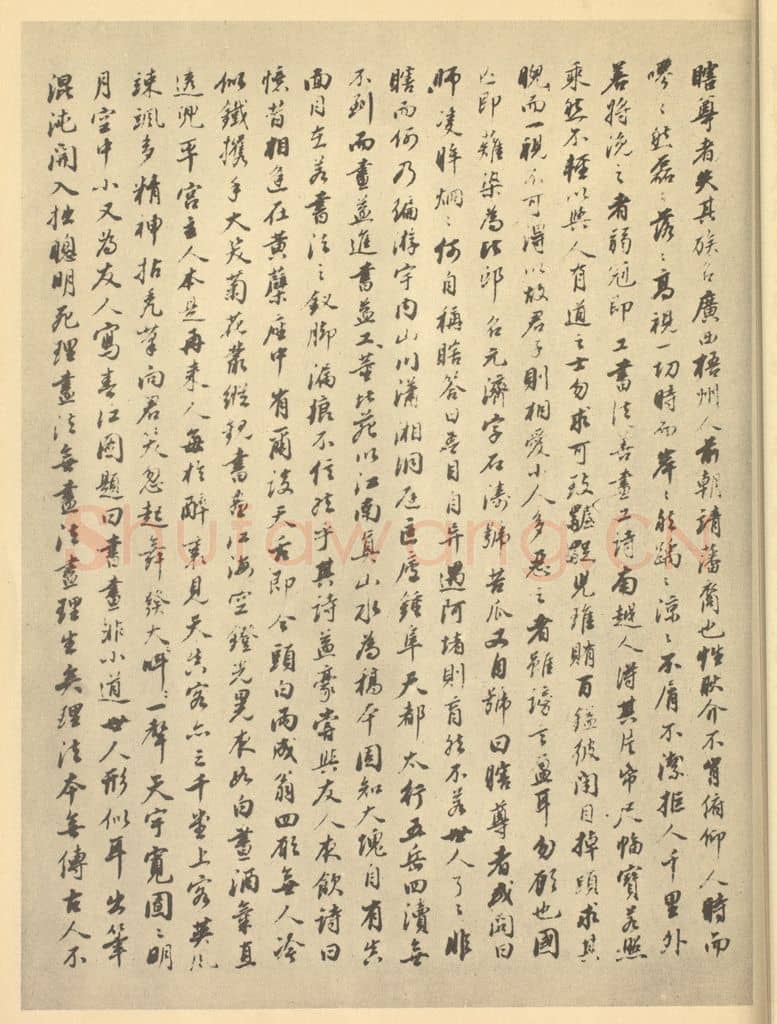 瞎尊者失其族名廣西梧州人前朝靖藩裔也性耿介不肯俯仰人時而
嘐〻然磊〻落〻高視一切時而岸〻然踽〻涼〻不屑不潔拒人千里外
若將浼之者弱冠即工書法善畫工詩南越人得其片帋尺幅寶若照
乘然不輕以與人有道之士勿求可致齷齪兒雖賄百鎰彼閉目掉頭求其
睨而一視不可得以故君子則相愛小人多惡之者雖謗言盈耳勿顧也國
亡即薙染為比邱名元濟字石濤號苦瓜又自號曰瞎尊者或問曰
師雙眸炯〻何自稱瞎答曰吾目自異遇阿堵則盲然不若世人了〻非
瞎而何乃徧游宇內山川瀟湘洞庭匡廬鍾阜天都太行五岳四瀆無
不到而畫益進書益工董北苑以江南真山水為稿本固知大塊自有真
面目在若書法之釵脚漏痕不信然乎其詩益豪嘗與友人夜飲詩曰
憶昔相逢在黃蘗座中有爾談天舌即今頭白兩成翁四顧無人冷
似鐵攫手大笑菊花叢縱觀書畫江海空鐙光晃夜如白晝酒氣直
透兜率宮主人本是再來人每於醉裏見天真客亦三千堂上客英風
竦颯多精神拈禿筆向君笑忽起舞發大叫〻一聲天宇寬團〻明
月空中小又為友人寫春江圖題曰書畫非小道世人形似耳出筆
混沌開入拙聰明死理盡法無盡法盡理生矣理法本無傳古人不
Shufawang.CN